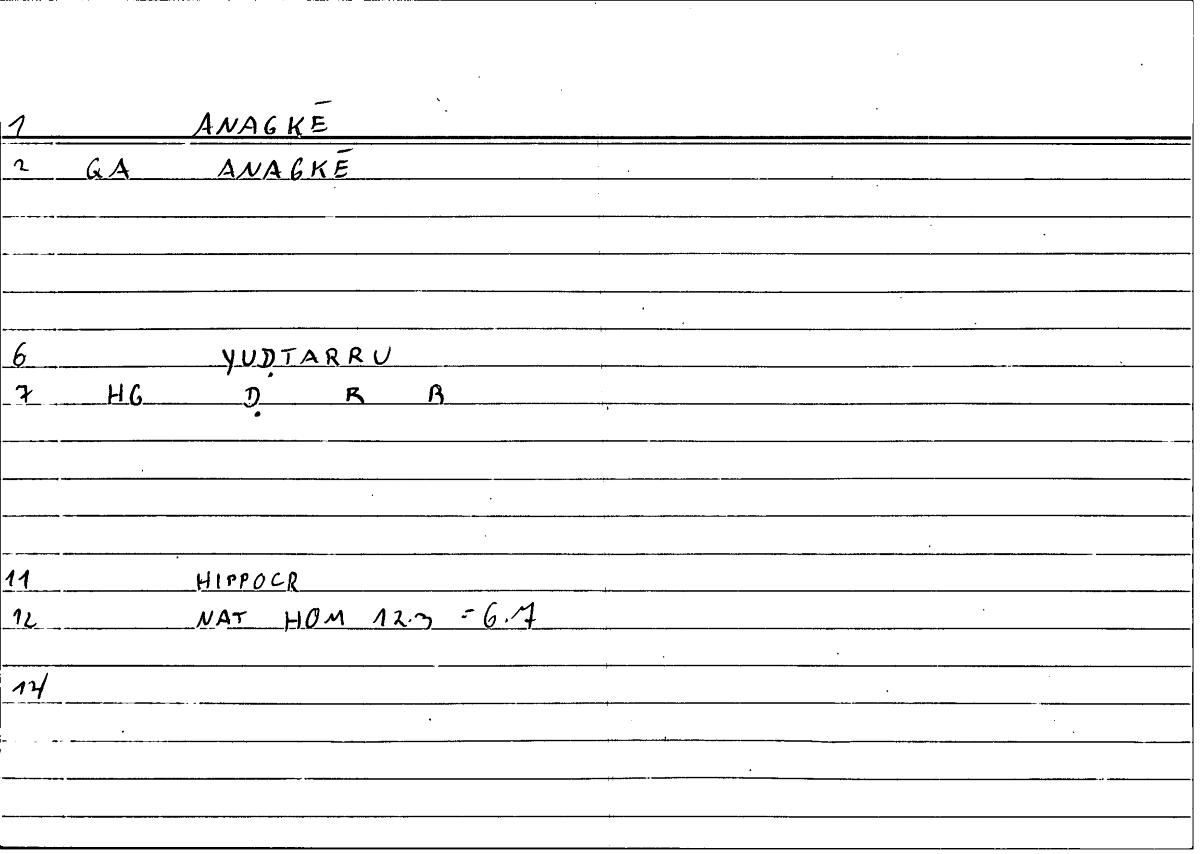 1 ANAGKĒ
2 GA ANAGKĒ
6 YUḌTARRU
7 HG Ḍ R R
11 HIPPOCR
12 NAT HOM 12.3 = 6.7
14